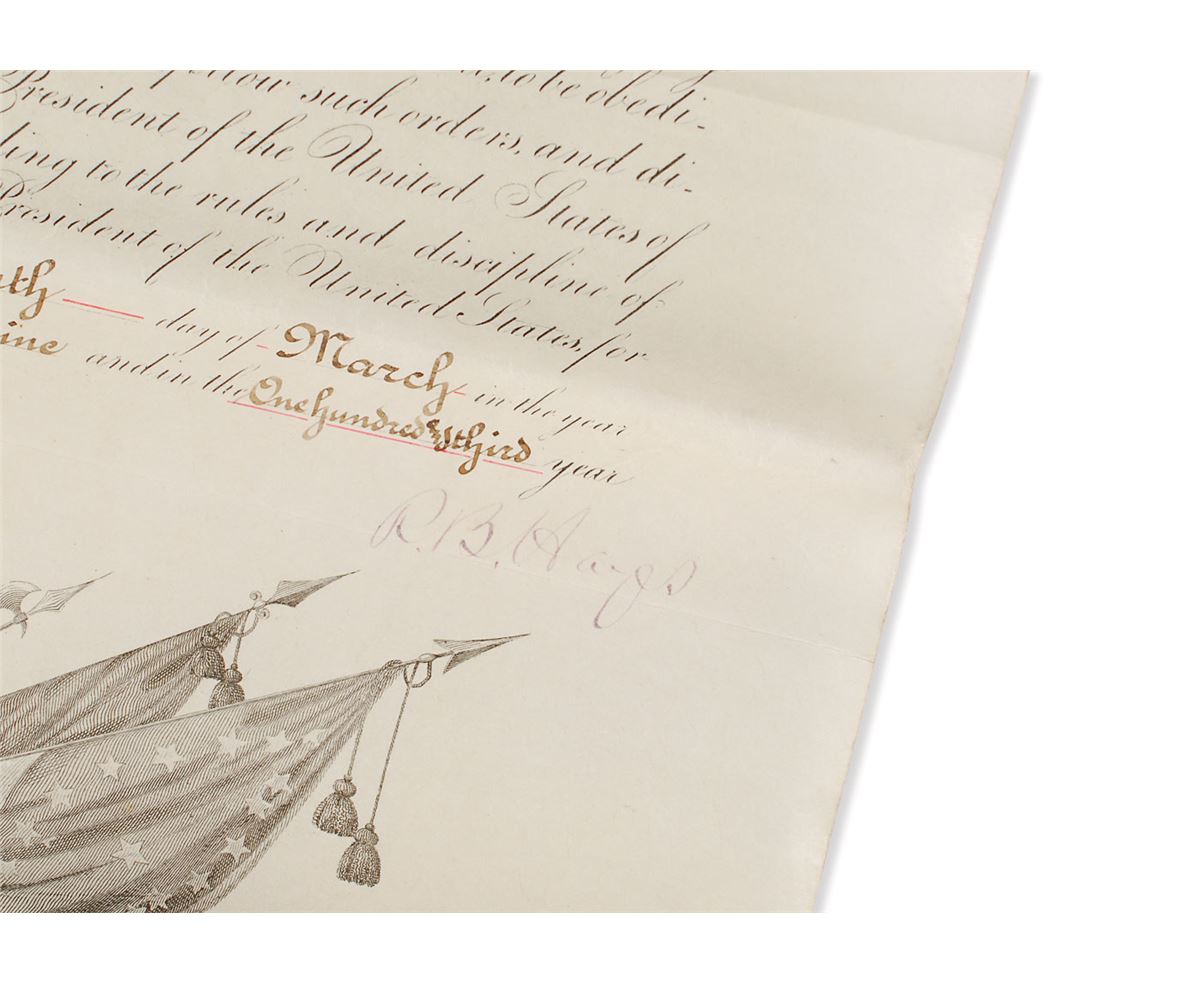 such orders, and di-
President of the United States of
ding to the rules and discipline of
President of the United States, for
day of March in the year
ine and in the One Hundred & third year
R. B. Hayes